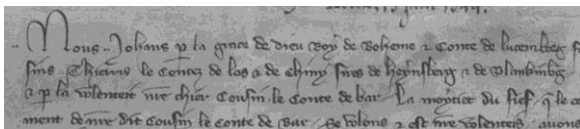 Nous Johans p la grace de dieu Roy de Boheme & Conte de lucembeg
Thieris le Contes de los & de Chiny sires de heynsberg & de Blankinbg
& p la volenteit nre chier Cousin le Conte de bar La moytie du fief q le
ment de nre dit Cousin le Conte de Bar Se volons & est nre volenteis avons